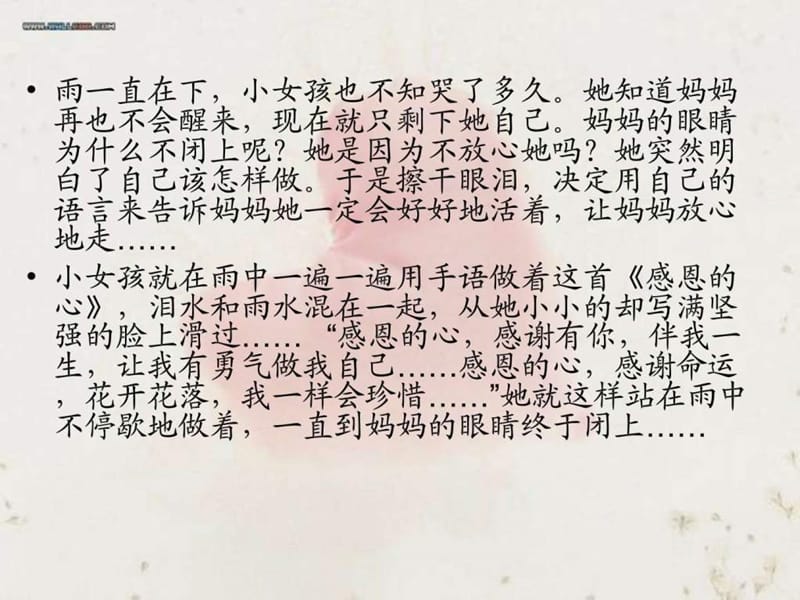 • 雨一直在下，小女孩也不知哭了多久。她知道妈妈
再也不会醒来，现在就只剩下她自己。妈妈的眼睛
为什么不闭上呢？她是因为不放心她吗？她突然明
白了自己该怎样做。于是擦干眼泪，决定用自己的
语言来告诉妈妈她一定会好好地活着，让妈妈放心
地走……
• 小女孩就在雨中一遍一遍用手语做着这首《感恩的
心》，泪水和雨水混在一起，从她小小的却写满坚
强的脸上滑过…… “感恩的心，感谢有你，伴我一
生，让我有勇气做我自己……感恩的心，感谢命运
，花开花落，我一样会珍惜……”她就这样站在雨中
不停歇地做着，一直到妈妈的眼睛终于闭上……